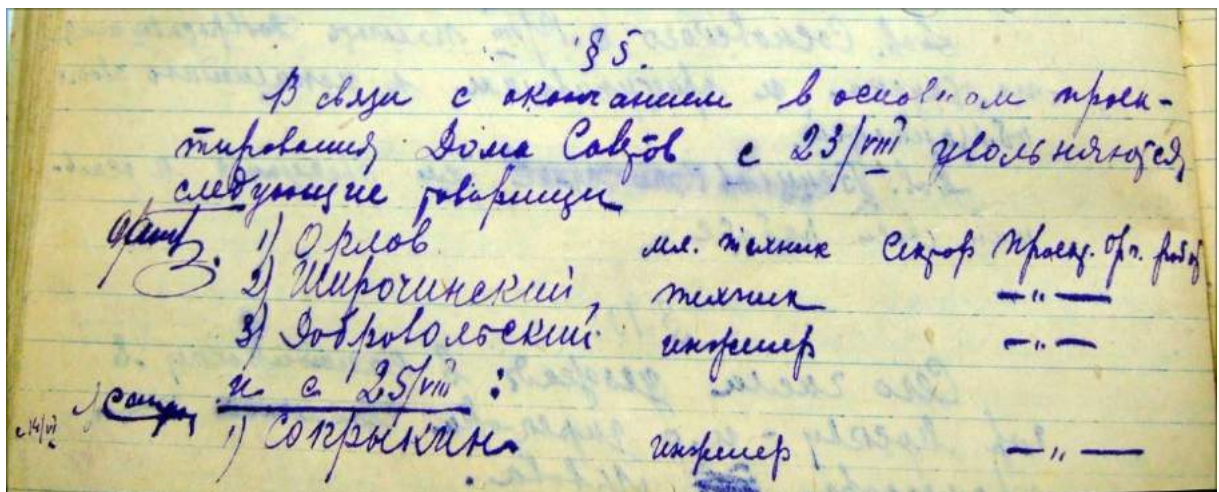 § 5.
В связи с окончанием в основном проек-
тирования Дома Советов с 23/VIII увольняются
следующие товарищи
1) Орлов. мл. техник Сектор Проект. Орг. работ
2) Широчинский, техник —"—
3) Добровольский инженер —"—
и с 25/VIII:
1) Сопрыкин. инженер —"—